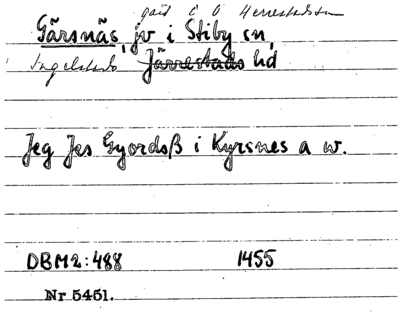 gård i Ö Herrestads sn
Gärsnäs, jv i Stiby sn,
Ingelstads Järrestads hd
Jeg Jes Gyordsß i Kyrsnes a w.
DBM2:488 1455
Nr 5451.